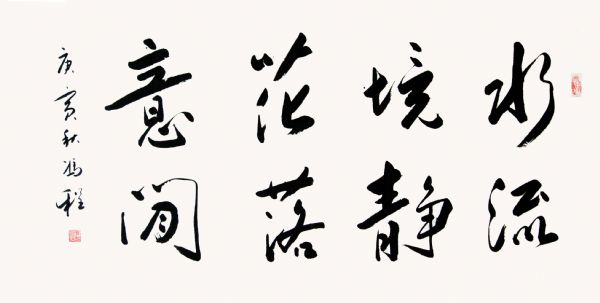 水流
境静
花落
意閒
庚寅秋冯程